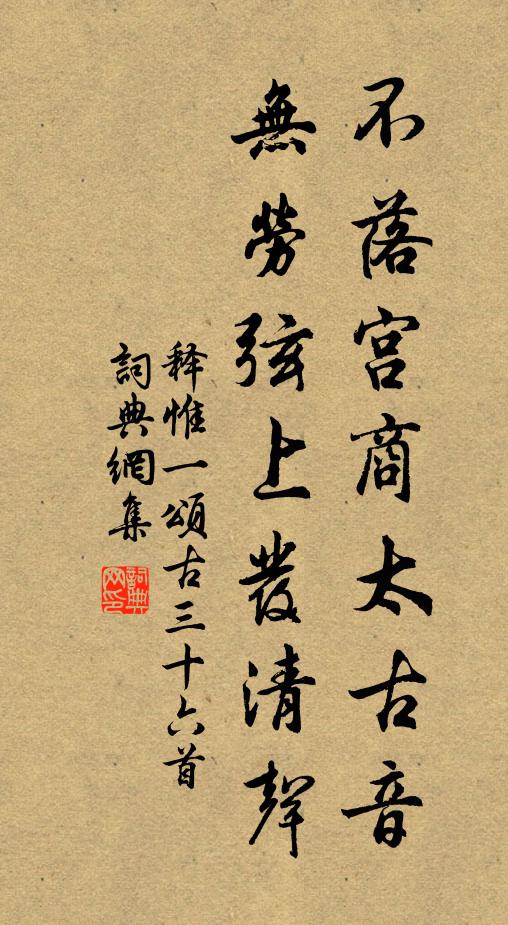 不落宮商太古音
無勞弦上發清聲
释惟一頌古三十六首
詞典網集
詞典网印